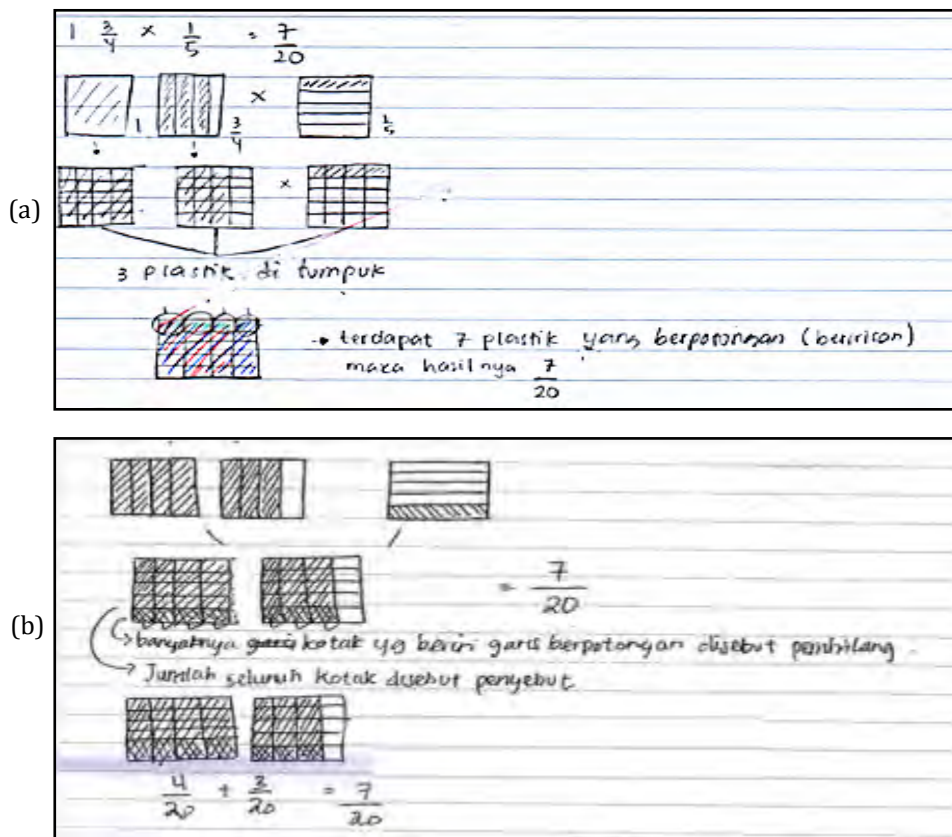 (a)
1 3/4 × 1/5 = 7/20
1 3/4 × 1/5
×
3 plastik di tumpuk
terdapat 7 plastik yang berpotongan (beririsan)
maka hasilnya 7/20
(b)
= 7/20
banyaknya kotak yg berisi garis berpotongan disebut pembilang.
Jumlah seluruh kotak disebut penyebut
4/20 + 3/20 = 7/20